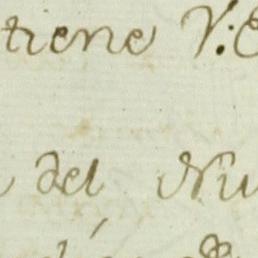 tiene V.E
del Nu